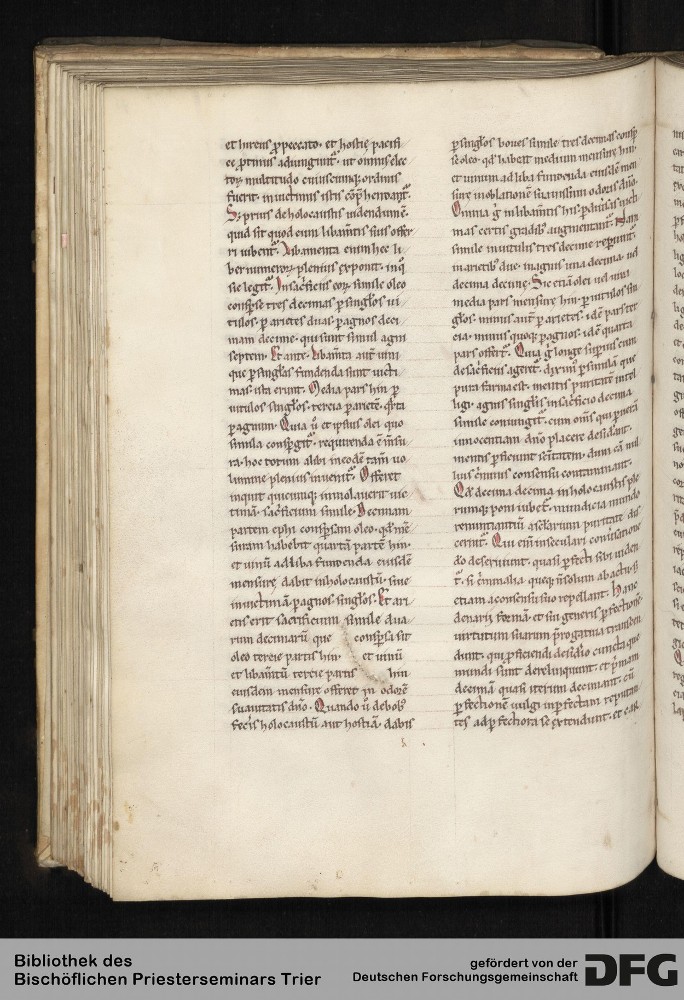 et hircus ꝓ peccato· et hostię pacifi
cę ꝓtinus adiungunt᷑· ut omnis elec
toꝝ multitudo cuiuscumq; ordinis
fuerit· in uictimis istis cōp̄hendat᷑·
Sꝫ prius de holocaustis uidendum ē·
quid sit quod cum libam̄tis suis offer
ri iubent᷑· Libamenta enim hęc li
ber numeroꝝ plenius exponit· in q̇
sic legit᷑· In sacrificiis eoꝝ simile oleo
conspersę tres decimas ꝑ singłos ui
tulos· ꝑ arietes duas· ꝑ agnos deci
mam decime· qui sunt simul agni
septem· Et ante· Libam̄ta aut̄ uini
quę ꝑ singłas fundenda sunt uicti
mas ista erunt· Media pars hin ꝑ
uitulos singłos· tercia ꝑ arietē· q̇rta
ꝑ agnum· Quia ů et ipsius olei quo
simila conspgit᷑· requirenda ē m̄su
ra· hoc totum alibi in eodē tam̄ uo
lumine plenius inuenit᷑· Offeret
inquit quicumq; immolauerit uic
timā· sacrificium simile· Decimam
partem ephi conspersam oleo· qd̄ m̄
suram habebit quartā partē hin·
et uinū ad liba fundenda eiusdē
mensurę dabit in holocaustū· siue
in uictimā· ꝑ agnos singłos· Et ari
etis erit sacrificium similę dua
rum decimarū quę conspersa sit
oleo tercię partis hin· et uinū
et libam̄tū tercię partis hin
eiusdem mensurę offeret in odorē
suauitatis dn̄o· Quando ů de bob;
feceris holocaustū aut hostiā· dabis
ꝑ singłos boues similę tres decimas consp
sę oleo· qd̄ habeat medium mensurę hin·
et uinum ad liba fundenda eiusdē men
surę in oblationē suauissimi odoris dn̄o·
Omnia g̊ in libam̄tis his ꝑ animalia uicti
mas certis gradib; augmentant᷑· Nam
similę in uitulis tres decimę reperiunt᷑·
in arietib; duę· in agnis una decima· uel
decima decimę· Sic etiā olei uel uini
media pars mensurę hin· ꝑ uitulos sin
głos· minus aut̄ ꝑ arietes· idē pars ter
cia· minus quoq; ꝑ agnos· idē quarta
pars offert᷑· Quia g̊ longe supius cum
de sacrificiis agerē· diximꝰ ꝑ similā quę
pura farina est· mentis puritatē intel
ligi· agnis singłis in sacrificio decima
similę coniungit᷑· cum om̄s qui ꝑ uitā
innocentiam dn̄o placere desid̄ant·
mentis ꝑficiunt scītatem· dum eā nul
lius c̄minis consensu contaminant·
Qd̄ decima decimę in holocaustis ple
rumq; poni iubet᷑· mundicia mundo
renuntiantiū a sc̄larium puritate dis
cernit᷑· Qui eim̄ in seculari conůsatione
dō deseruiunt· quasi ꝑfecti sibi uiden
t᷑· si c̄minalia quęq; n̄ solum ab actu· s;
etiam a consensu suo repellant· Hanc
denarii formā et sui generis ꝑfectionē
uirtutum suarum p̄rogatiua transcen
dunt· qui ꝑficiendi desid̄io cuncta quę
mundi sunt derelinquunt· et p̄mam
decimā quasi iterum decimant· cū
ꝑfectionē uulgi inꝑfectam reputan
tes ad ꝑfectiora se extendunt· et car
Bibliothek des
Bischöflichen Priesterseminars Trier
gefördert von der
Deutschen Forschungsgemeinschaft
DFG